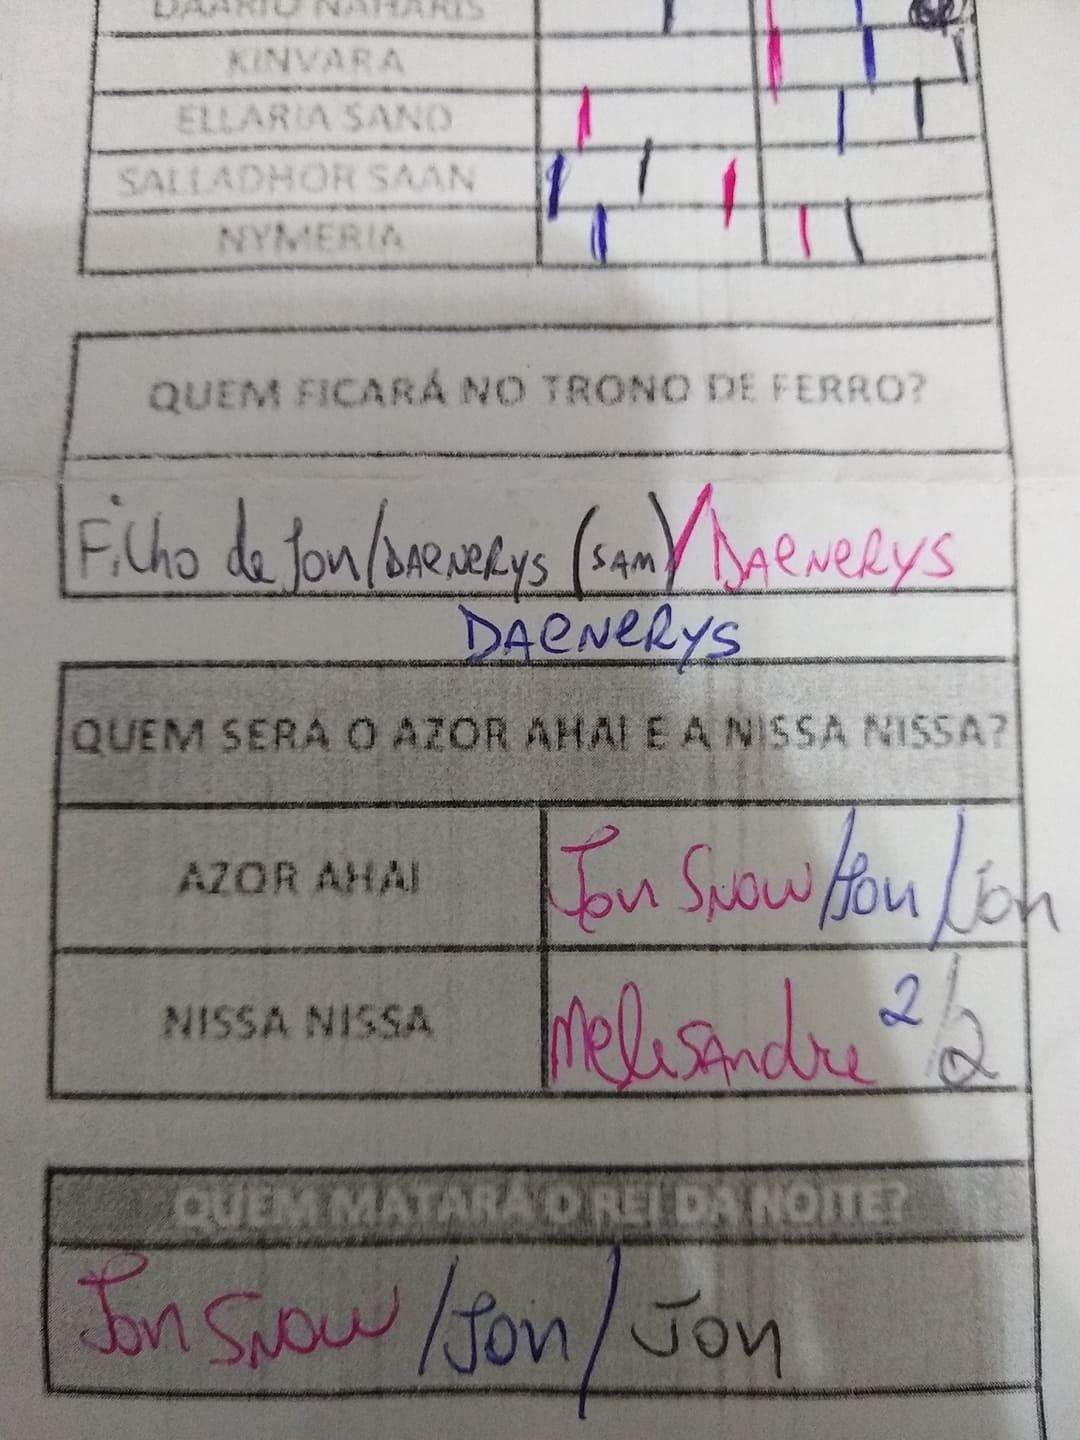 DAARIO NAHARIS
KINVARA
ELLARIA SAND
SALLADHOR SAAN
NYMERIA
QUEM FICARÁ NO TRONO DE FERRO?
Filho de Jon/DAENERYS (SAM)/DAENERYS
DAENERYS
QUEM SERÁ O AZOR AHAI E A NISSA NISSA?
AZOR AHAI Jon Snow/Jon/Jon
NISSA NISSA Melisandre 2/2
QUEM MATARÁ O REI DA NOITE?
Jon Snow/Jon/Jon